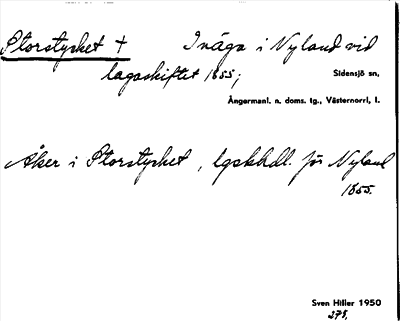 Storstycket † Inäga i Nyland vid
lagaskiftet 1855;
Sidensjö sn,
Ångermanl. n. doms. tg., Västernorrl, l.
Åker i Storstycket, lgskhdl. för Nyland
1855.
Sven Hiller 1950
278.